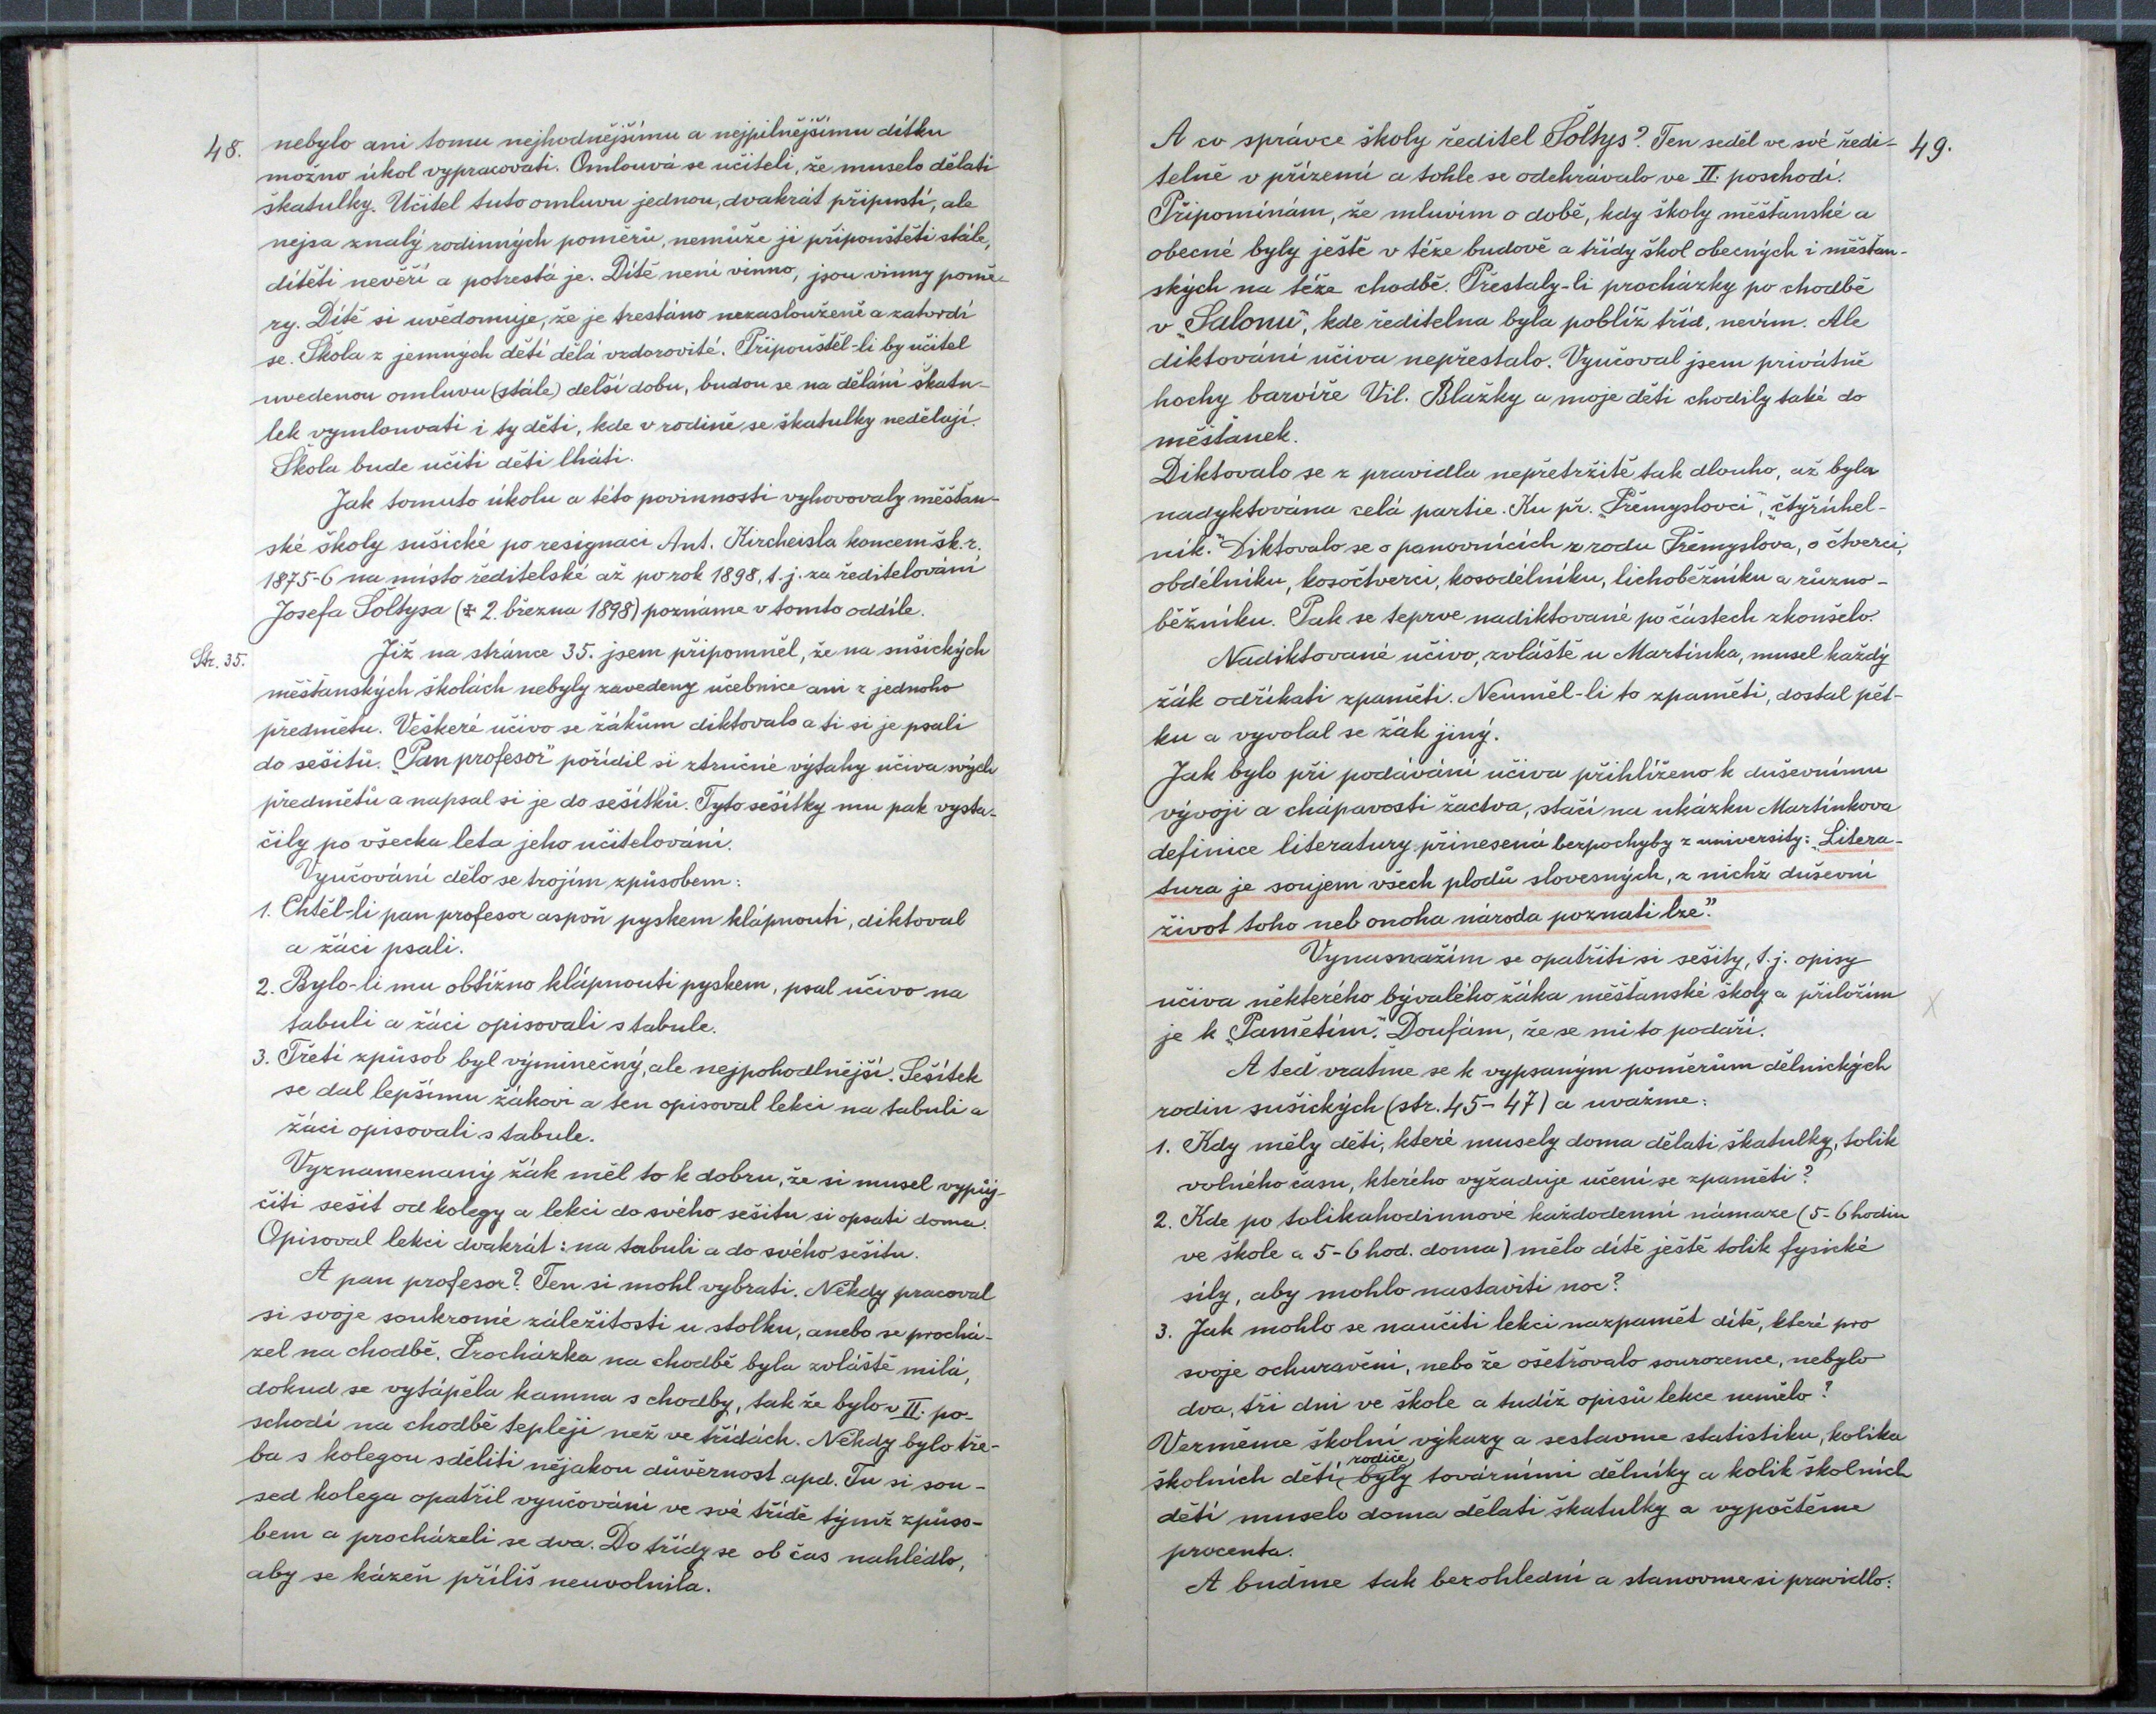 48.
nebylo ani tomu nejhodnějšímu a nejpilnějšímu dítku
možno úkol vypracovati. Omlouvá se učiteli, že muselo dělati
škatulky. Učitel tuto omluvu jednou, dvakrát připustí, ale
nejsa znalý rodinných poměrů, nemůže ji připouštěti stále,
dítěti nevěří a potrestá je. Dítě není vinno, jsou vinny pomě-
ry. Dítě si uvědomuje, že je trestáno nezaslouženě a zatvrdí
se. Škola z jemných dětí dělá vzdorovité. Připouštěl-li by učitel
uvedenou omluvu (stále) delší dobu, budou se na dělání škatu-
lek vymlouvati i ty děti, kde v rodině se škatulky nedělají.
Škola bude učiti děti lháti.
Jak tomuto úkolu a této povinnosti vyhovovaly měšťan-
ské školy sušické po resignaci Ant. Kircheisla koncem šk. r.
1875-6 na místo ředitelské až po rok 1898, t. j. za ředitelování
Josefa Šoltysa (✠ 2. března 1898) poznáme v tomto oddíle.
Str. 35.
Již na stránce 35. jsem připomněl, že na sušických
měšťanských školách nebyly zavedeny učebnice ani z jednoho
předmětu. Veškeré učivo se žákům diktovalo a ti si je psali
do sešitů. „Pan profesor" pořídil si stručné výtahy učiva svých
předmětů a napsal si je do sešítků. Tyto sešítky mu pak vysta-
čily po všecka leta jeho učitelování.
Vyučování dělo se trojím způsobem:
1. Chtěl-li pan profesor aspoň pyskem klápnouti, diktoval
a žáci psali.
2. Bylo-li mu obtížno klápnouti pyskem, psal učivo na
tabuli a žáci opisovali s tabule.
3. Třetí způsob byl výminečný, ale nejpohodlnější. Sešítek
se dal lepšímu žákovi a ten opisoval lekci na tabuli a
žáci opisovali s tabule.
Vyznamenaný žák měl to k dobru, že si musel vypůj-
čiti sešit od kolegy a lekci do svého sešitu si opsati doma.
Opisoval lekci dvakrát: na tabuli a do svého sešitu.
A pan profesor? Ten si mohl vybrati. Někdy pracoval
si svoje soukromé záležitosti u stolku, anebo se prochá-
zel na chodbě. Procházka na chodbě byla zvláště milá,
dokud se vytápěla kamna s chodby, tak že bylo v II. po-
schodí na chodbě tepleji než ve třídách. Někdy bylo tře-
ba s kolegou sděliti nějakou důvěrnost apd. Tu si sou-
sed kolega opatřil vyučování ve své třídě týmž způso-
bem a procházeli se dva. Do třídy se ob čas nahlédlo,
aby se kázeň příliš neuvolnila.
49.
A co správce školy ředitel Šoltys? Ten seděl ve své ředi-
telně v přízemí a tohle se odehrávalo ve II. poschodí.
Připomínám, že mluvím o době, kdy školy měšťanské a
obecné byly ještě v téže budově a třídy škol obecných i měšťan-
ských na téže chodbě. Přestaly-li procházky po chodbě
v „Salonu", kde ředitelna byla poblíž tříd, nevím. Ale
diktování učiva nepřestalo. Vyučoval jsem privátně
hochy barvíře Vil. Blažky a moje děti chodily také do
měšťanek.
Diktovalo se z pravidla nepřetržitě tak dlouho, až byla
nadyktována celá partie. Ku př. „Přemyslovci", „čtyřúhel-
ník." Diktovalo se o panovnících z rodu Přemyslova, o čtverci,
obdélníku, kosočtverci, kosodélníku, lichoběžníku a různo-
běžníku. Pak se teprve nadiktované po částech zkoušelo.
Nadiktované učivo, zvláště u Martínka, musel každý
žák odříkati zpaměti. Neuměl-li to zpaměti, dostal pět-
ku a vyvolal se žák jiný.
Jak bylo při podávání učiva přihlíženo k duševnímu
vývoji a chápavosti žactva, stačí na ukázku Martínkova
definice literatury přinesená bezpochyby z university: „Litera-
tura je soujem všech plodů slovesných, z nichž duševní
život toho neb onoho národa poznati lze."
Vynasnažím se opatřiti si sešity, t. j. opisy
učiva některého bývalého žáka měšťanské školy a přiložím
je k „Pamětím." Doufám, že se mi to podaří.
X
A teď vraťme se k vypsaným poměrům dělnických
rodin sušických (str. 45-47) a uvažme:
1. Kdy měly děti, které musely doma dělati škatulky, tolik
volného času, kterého vyžaduje učení se zpaměti?
2. Kde po tolikahodinnové každodenní námaze (5-6 hodin
ve škole a 5-6 hod. doma) mělo dítě ještě tolik fysické
síly, aby mohlo nastaviti noc?
3. Jak mohlo se naučiti lekci nazpamět dítě, které pro
svoje ochuravění, nebo že ošetřovalo sourozence, nebylo
dva, tři dni ve škole a tudíž opisů lekce nemělo?
Vezměme školní výkazy a sestavme statistiku, kolika
školních dětí rodiče byly továrními dělníky a kolik školních
dětí muselo doma dělati škatulky a vypočtěme
procenta.
A buďme tak bezohlední a stanovme si pravidlo: